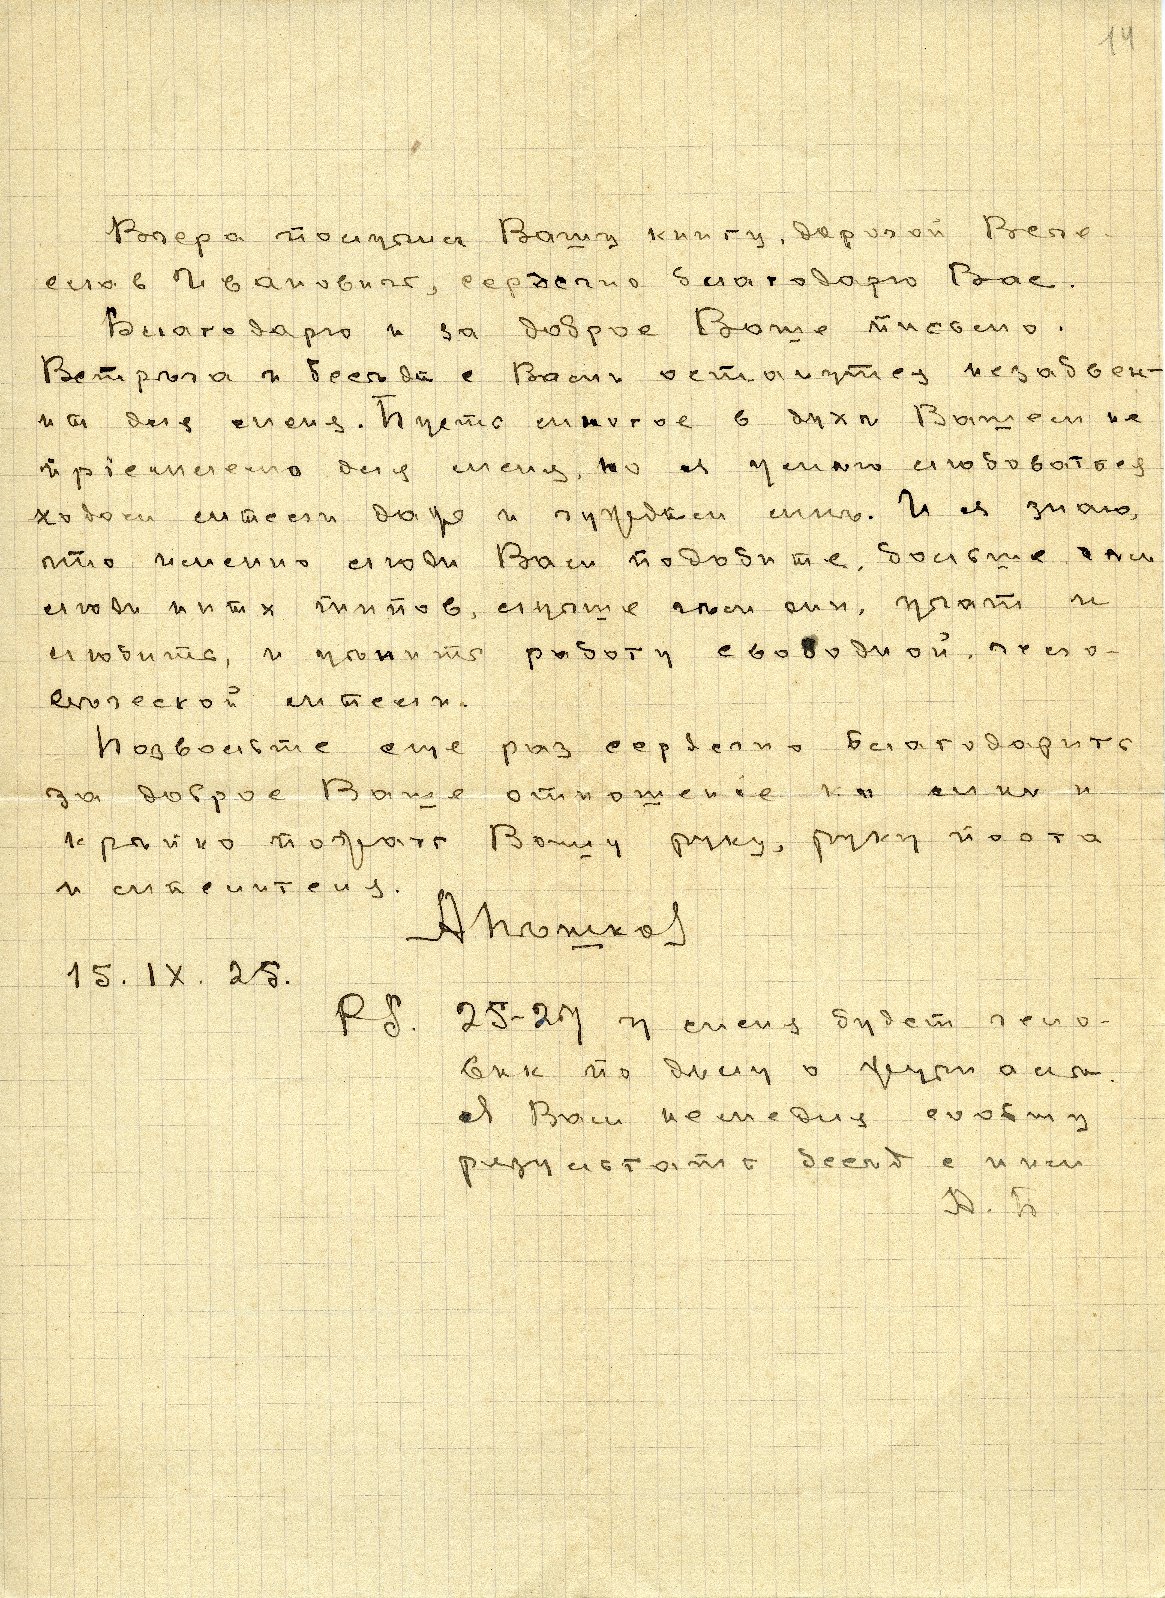 14
Вчера получил Вашу книгу, дорогой Вяче-
слав Иванович, сердечно благодарю Вас.
Благодарю и за доброе Ваше письмо.
Встрѣча и бесѣда с Вами останутся незабвен-
ны для меня. Пусть многое в духѣ Вашем не
приемлемо для меня, но я умѣю любоваться
ходом мысли даже и чуждым мнѣ. И я знаю,
что именно люди Вам подобные, больше чѣм
люди иных типов, лучше чѣм они, учат и
любить, и цѣнить работу свободной, чело-
вѣческой мысли.
Позвольте еще раз сердечно благодарить
за доброе Ваше отношение ко мнѣ и
крѣпко пожать Вашу руку, руку поэта
и мыслителя.
А Пѣшков
15. IX. 25.
P.S. 25-27 у меня будет чело-
вѣк по дѣлу о журналѣ.
Я Вам немедля сообщу
результаты бесѣд с ним
А. П